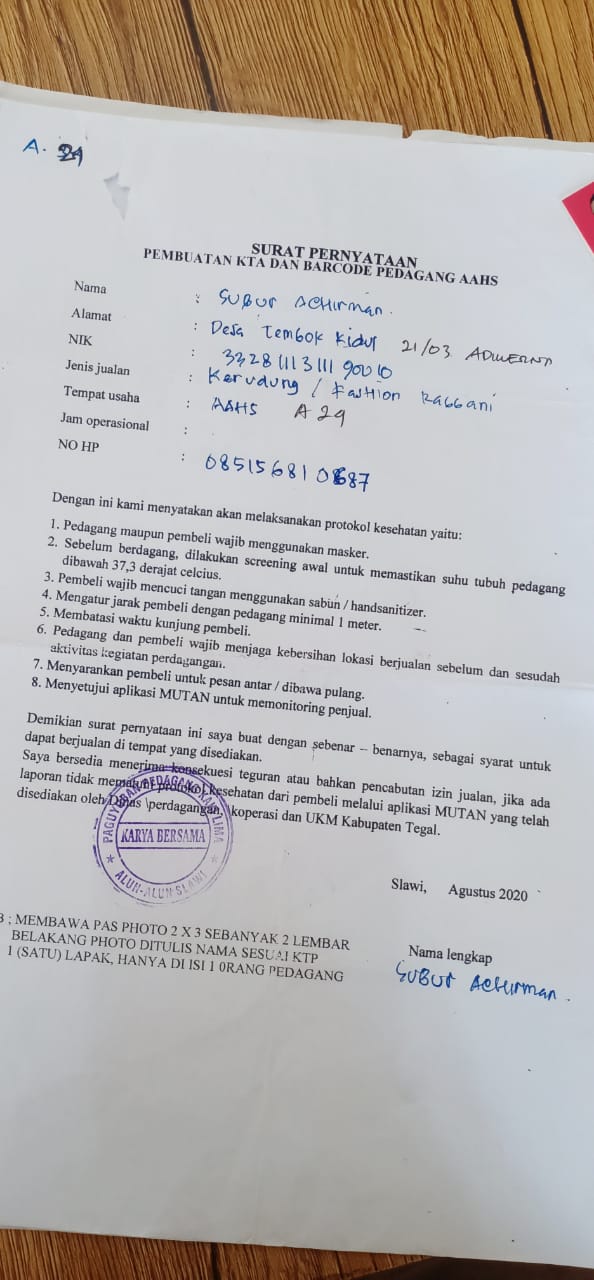 A. 29
SURAT PERNYATAAN
PEMBUATAN KTA DAN BARCODE PEDAGANG AAHS
Nama : SUBUR ACHIRMAN.
Alamat : Desa Tembok Kidul 21/03 ADIWERNA
NIK : 3328111311190010
Jenis jualan : Kerudung / Fashion Rabbani
Tempat usaha : AAHS A 29
Jam operasional :
NO HP : 085156810687
Dengan ini kami menyatakan akan melaksanakan protokol kesehatan yaitu:
1. Pedagang maupun pembeli wajib menggunakan masker.
2. Sebelum berdagang, dilakukan screening awal untuk memastikan suhu tubuh pedagang
dibawah 37,3 derajat celcius.
3. Pembeli wajib mencuci tangan menggunakan sabun / handsanitizer.
4. Mengatur jarak pembeli dengan pedagang minimal 1 meter.
5. Membatasi waktu kunjung pembeli.
6. Pedagang dan pembeli wajib menjaga kebersihan lokasi berjualan sebelum dan sesudah
aktivitas kegiatan perdagangan.
7. Menyarankan pembeli untuk pesan antar / dibawa pulang.
8. Menyetujui aplikasi MUTAN untuk memonitoring penjual.
Demikian surat pernyataan ini saya buat dengan sebenar – benarnya, sebagai syarat untuk
dapat berjualan di tempat yang disediakan.
Saya bersedia menerima konsekuesi teguran atau bahkan pencabutan izin jualan, jika ada
laporan tidak mematuhi protokol kesehatan dari pembeli melalui aplikasi MUTAN yang telah
disediakan oleh Dinas \perdagangan, koperasi dan UKM Kabupaten Tegal.
PAGUYUBAN PEDAGANG KAKI LIMA
KARYA BERSAMA
* ALUN-ALUN SLAWI *
Slawi, Agustus 2020
B ; MEMBAWA PAS PHOTO 2 X 3 SEBANYAK 2 LEMBAR
BELAKANG PHOTO DITULIS NAMA SESUAI KTP
1 (SATU) LAPAK, HANYA DI ISI 1 0RANG PEDAGANG
Nama lengkap
SUBUR ACHIRMAN.